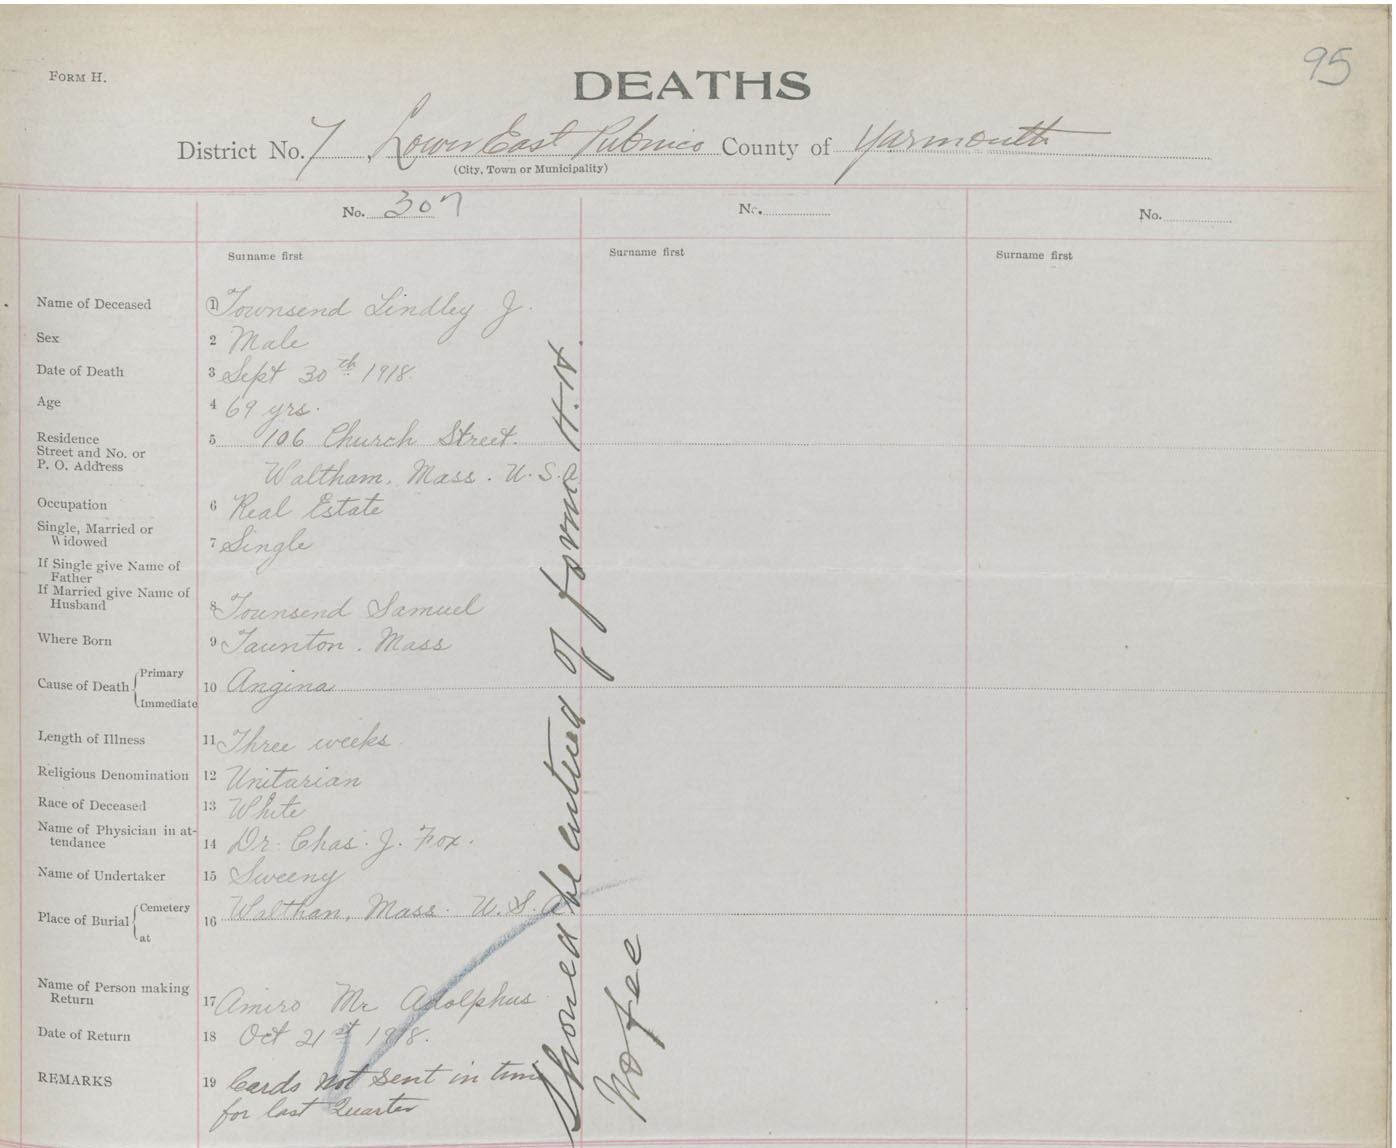 FORM H.
DEATHS
95
District No. 7, Lower East Pubnico County of Yarmouth
(City, Town or Municipality)
No. 307
No.
No.
Surname first
Surname first
Surname first
Name of Deceased 1 Townsend Lindley J.
Sex 2 Male
Date of Death 3 Sept 30th 1918
Age 4 69 yrs.
Residence
Street and No. or
P. O. Address
5 106 Church Street.
Waltham, Mass. U.S.A
Occupation 6 Real Estate
Single, Married or
Widowed
7 Single
If Single give Name of
Father
If Married give Name of
Husband
8 Townsend Samuel
Where Born 9 Taunton. Mass
Cause of Death Primary
Immediate
10 Angina
Length of Illness 11 Three weeks
Religious Denomination 12 Unitarian
Race of Deceased 13 White
Name of Physician in at-
tendance
14 Dr. Chas. J. Fox.
Name of Undertaker 15 Sweeny
Place of Burial Cemetery
at
16 Walthan, Mass. U.S.A
Name of Person making
Return
17 Amiro Mr Adolphus
Date of Return 18 Oct 21st 1918.
REMARKS 19 Cards not sent in time
for last Quarter
Should be entered of form H.H.
No fee